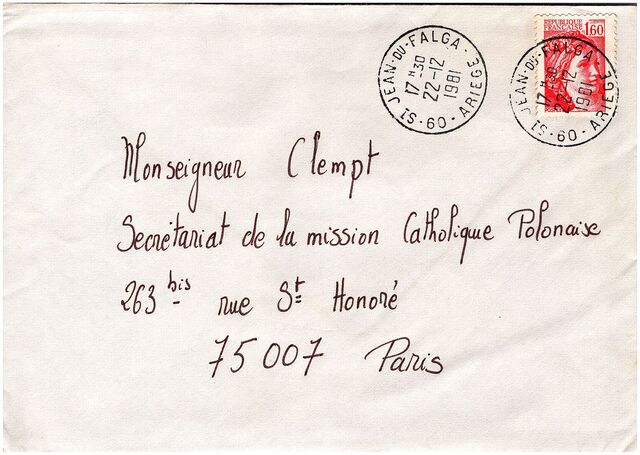 REPUBLIQUE
FRANCAISE
1,60
ST-JEAN-DU-FALGA-
17H30
22-12
1981
-60-ARIEGE
ST-JEAN-DU-FALGA-
17H30
22-12
1981
-60-ARIEGE
Monseigneur Clempt
Secrétariat de la mission Catholique Polonaise
263 bis rue St Honoré
75007 Paris